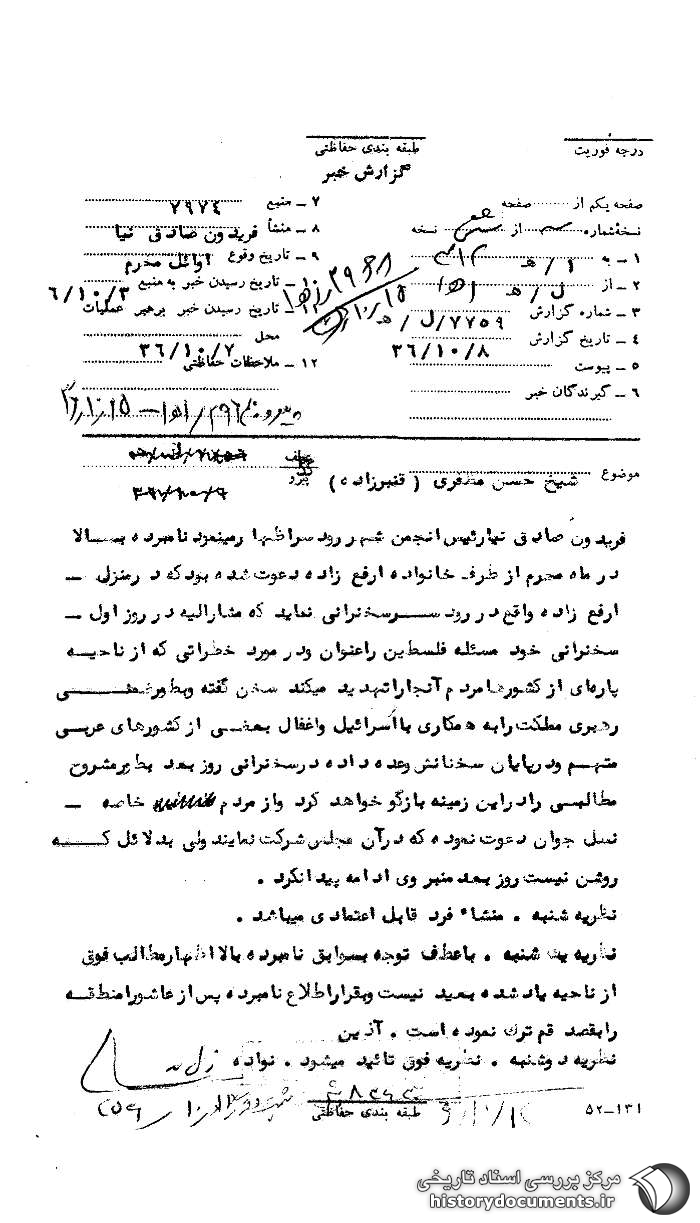 درجه فوریت
طبقه بندی حفاظتی
گزارش خبر
صفحه یکم از صفحه
نسخه شماره از نسخه
۱ ـ به ۳۱۲
۱ / هـ
۲ ـ از ل / هـ
۳ ـ شماره گزارش ۷۷۵۹ / ل / هـ
۴ ـ تاریخ گزارش ۳۶/۱۰/۸
۵ ـ پیوست
۶ ـ گیرندگان خبر
۷ ـ منبع ۷۹۷۴
۸ ـ منشأ فریدون صادقی نیا
۹ ـ تاریخ وقوع اوائل محرم
۱۰ ـ تاریخ رسیدن خبر به منبع ۶/۱۰/۳
۱۱ ـ تاریخ رسیدن خبر برهبر عملیات
محل ۳۶/۱۰/۷
۱۲ ـ ملاحظات حفاظتی
موضوع شیخ حسن مظفری ( قنبرزاده )
عطف
پیرو
فریدون صادقی نیا رئیس انجمن شهر رودسر اظهار مینمود نامبرده بالا
در ماه محرم از طرف خانواده ارفع زاده دعوت شده بود که در منزل ـ
ارفع زاده واقع در رودسر سخنرانی نماید که مشارالیه در روز اول ـ
سخنرانی خود مسئله فلسطین را عنوان و در مورد خطراتی که از ناحیه
پاره‌ای از کشورها مردم آنجا را تهدید میکند سخن گفته و بطور ضمنی
رهبری مملکت را به همکاری با اسرائیل و اغفال بعضی از کشورهای عربی
متهم و در پایان سخنانش وعده داده در سخنرانی روز بعد بطور مشروح
مطالبی را در این زمینه بازگو خواهد کرد و از مردم خاصه ـ
نسل جوان دعوت نموده که در آن مجلس شرکت نمایند ولی بدلائل که
روشن نیست روز بعد منبر وی ادامه پیدا نکرد .
نظریه شنبه . منشاء فرد قابل اعتمادی میباشد .
نظریه یکشنبه . با عطف توجه بسوابق نامبرده بالا اظهار مطالب فوق
از ناحیه یاد شده بعید نیست و بقرار اطلاع نامبرده پس از عاشورا منطقه
را بقصد قم ترک نموده است . آذین
نظریه دوشنبه . نظریه فوق تائید میشود . نواده
طبقه بندی حفاظتی
۵۲ـ۱۳۱
مرکز بررسی اسناد تاریخی
historydocuments.ir